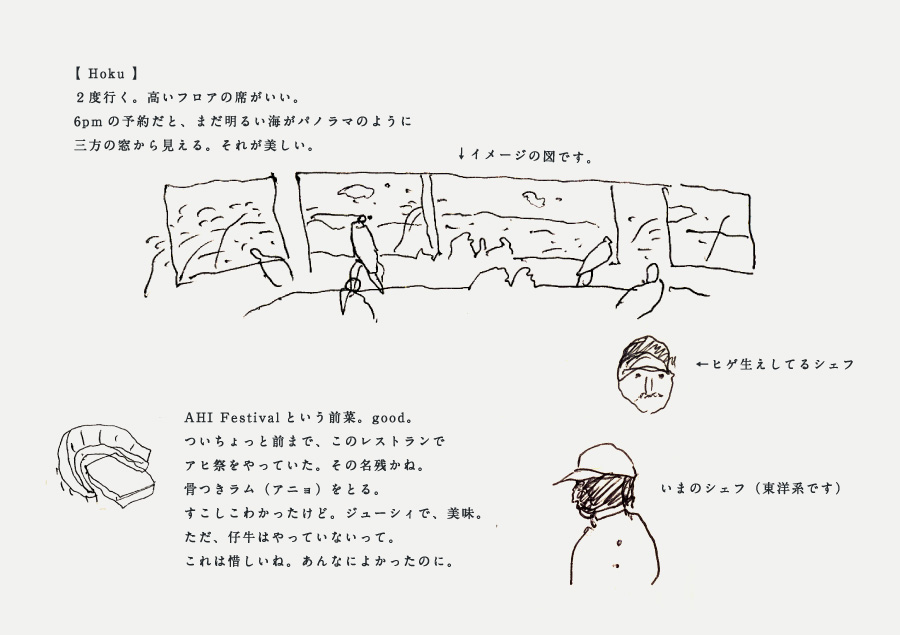 【 Hoku 】
２度行く。高いフロアの席がいい。
6pm の予約だと、まだ明るい海がパノラマのように
三方の窓から見える。それが美しい。
↓イメージの図です。
←ヒゲ生えしてるシェフ
AHI Festival という前菜。good。
ついちょっと前まで、このレストランで
アヒ祭をやっていた。その名残かね。
骨つきラム（アニョ）をとる。
すこしこわかったけど。ジューシィで、美味。
ただ、仔牛はやっていないって。
これは惜しいね。あんなによかったのに。
いまのシェフ（東洋系です）